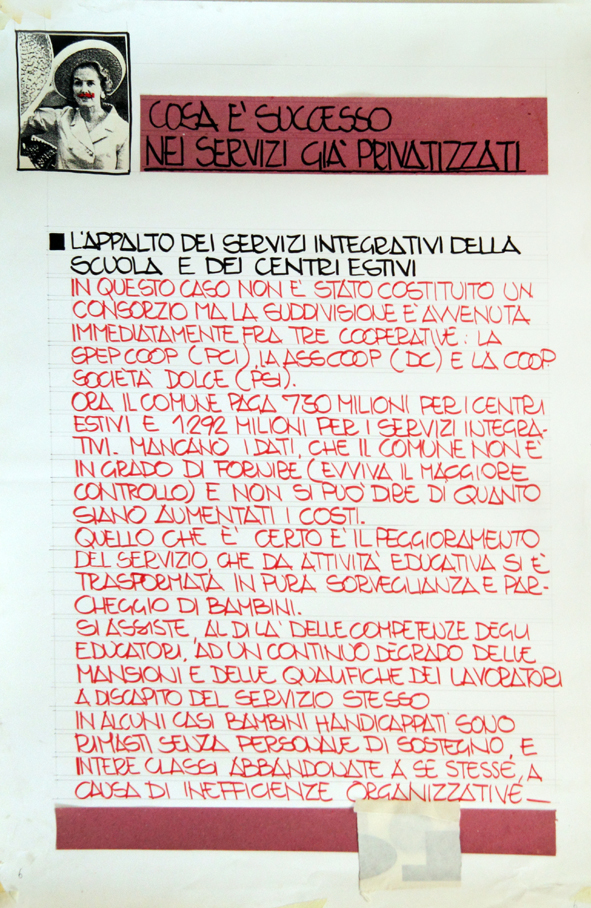 COSA E' SUCCESSO
NEI SERVIZI GIA' PRIVATIZZATI
L'APPALTO DEI SERVIZI INTEGRATIVI DELLA
SCUOLA E DEI CENTRI ESTIVI
IN QUESTO CASO NON E' STATO COSTITUITO UN
CONSORZIO MA LA SUDDIVISIONE E' AVVENUTA
IMMEDIATAMENTE FRA TRE COOPERATIVE: LA
SPEP COOP (PCI), LA ASSCOOP (DC) E LA COOP
SOCIETA' DOLCE (PSI).
ORA IL COMUNE PAGA 730 MILIONI PER I CENTRI
ESTIVI E 1292 MILIONI PER I SERVIZI INTEGRA-
TIVI. MANCANO I DATI, CHE IL COMUNE NON E'
IN GRADO DI FORNIRE (EVVIVA IL MAGGIORE
CONTROLLO) E NON SI PUO' DIRE DI QUANTO
SIANO AUMENTATI I COSTI.
QUELLO CHE E' CERTO E' IL PEGGIORAMENTO
DEL SERVIZIO, CHE DA ATTIVITA' EDUCATIVA SI E'
TRASFORMATA IN PURA SORVEGLIANZA E PAR-
CHEGGIO DI BAMBINI.
SI ASSISTE, AL DI LA' DELLE COMPETENZE DEGLI
EDUCATORI, AD UN CONTINUO DEGRADO DELLE
MANSIONI E DELLE QUALIFICHE DEI LAVORATORI
A DISCAPITO DEL SERVIZIO STESSO
IN ALCUNI CASI BAMBINI HANDICAPPATI SONO
RIMASTI SENZA PERSONALE DI SOSTEGNO, E
INTERE CLASSI ABBANDONATE A SE STESSE, A
CAUSA DI INEFFICIENZE ORGANIZZATIVE_
6